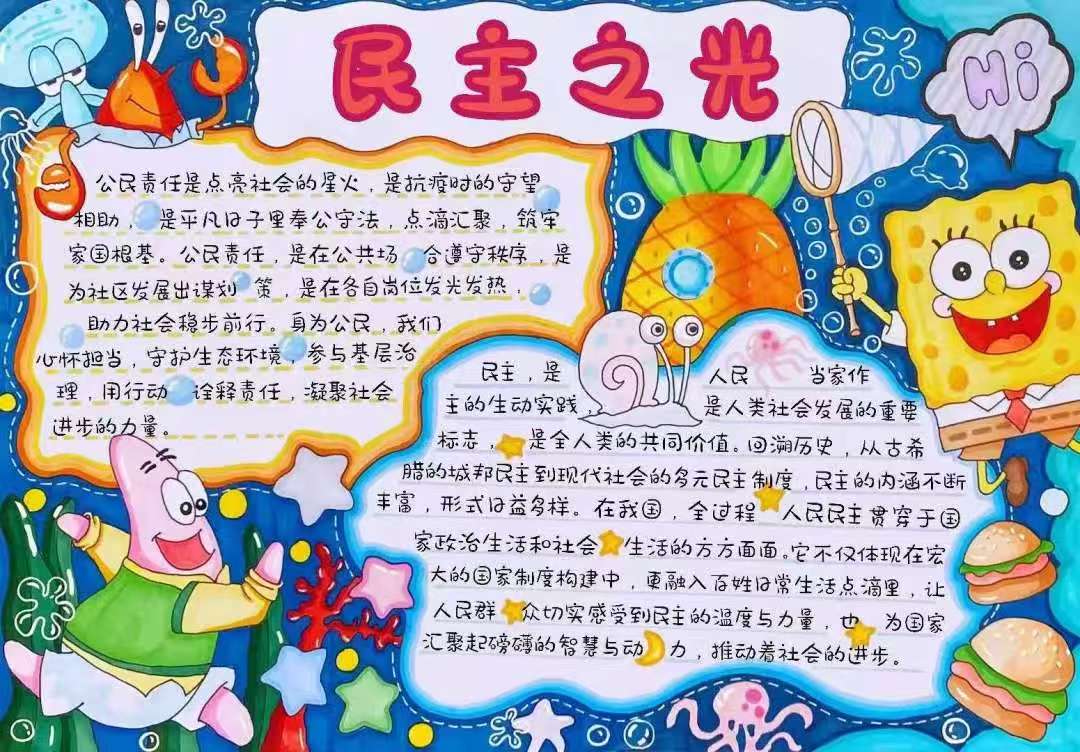 民主之光
Hi
公民责任是点亮社会的星火，是抗疫时的守望
相助，是平凡日子里奉公守法，点滴汇聚，筑牢
家国根基。公民责任，是在公共场合遵守秩序，是
为社区发展出谋划策，是在各自岗位发光发热，
助力社会稳步前行。身为公民，我们
心怀担当，守护生态环境，参与基层治
理，用行动诠释责任，凝聚社会
进步的力量。
民主，是人民当家作
主的生动实践，是人类社会发展的重要
标志，是全人类的共同价值。回溯历史，从古希
腊的城邦民主到现代社会的多元民主制度，民主的内涵不断
丰富，形式日益多样。在我国，全过程人民民主贯穿于国
家政治生活和社会生活的方方面面。它不仅体现在宏
大的国家制度构建中，更融入百姓日常生活点滴里，让
人民群众切实感受到民主的温度与力量，也为国家
汇聚起磅礴的智慧与动力，推动着社会的进步。